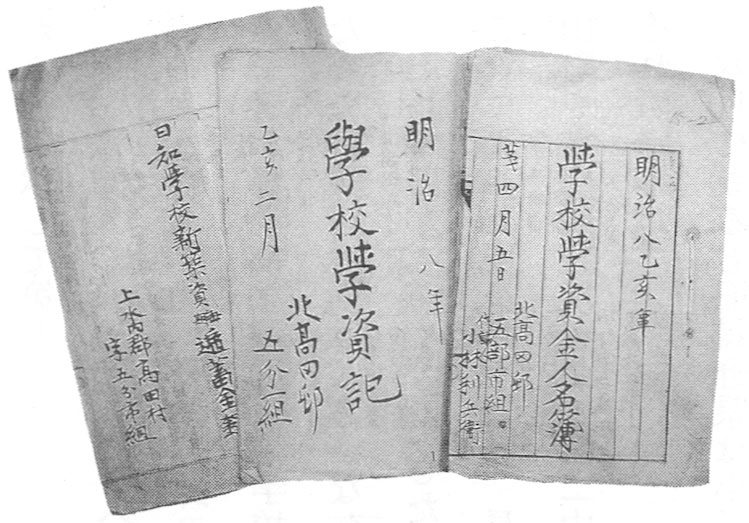 明治八乙亥年
学校学資金人名簿
第四月五日
北高田邨
五部市組
小林利兵衛
明治八年
學校学資記
乙亥二月
北高田邨
五分一組
日知学校新築資
上水内郡高田村
字五分市組